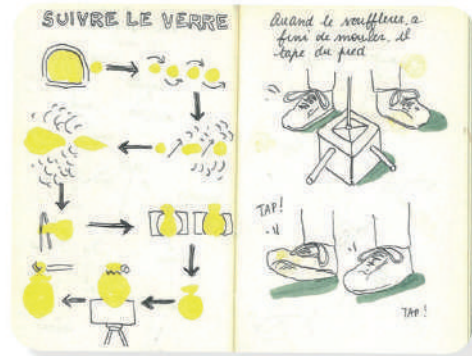 SUIVRE LE VERRE
Quand le souffleur, a
fini de mouler, il
tape du pied
TAP!
TAP!